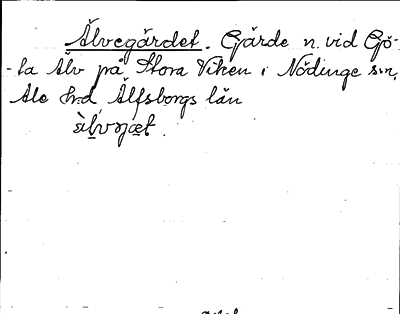 Älvegärdet. Gärde n. vid Gö-
-ta Älv på Stora Viken i Nödinge sn,
Ale hrd Älfsborgs län